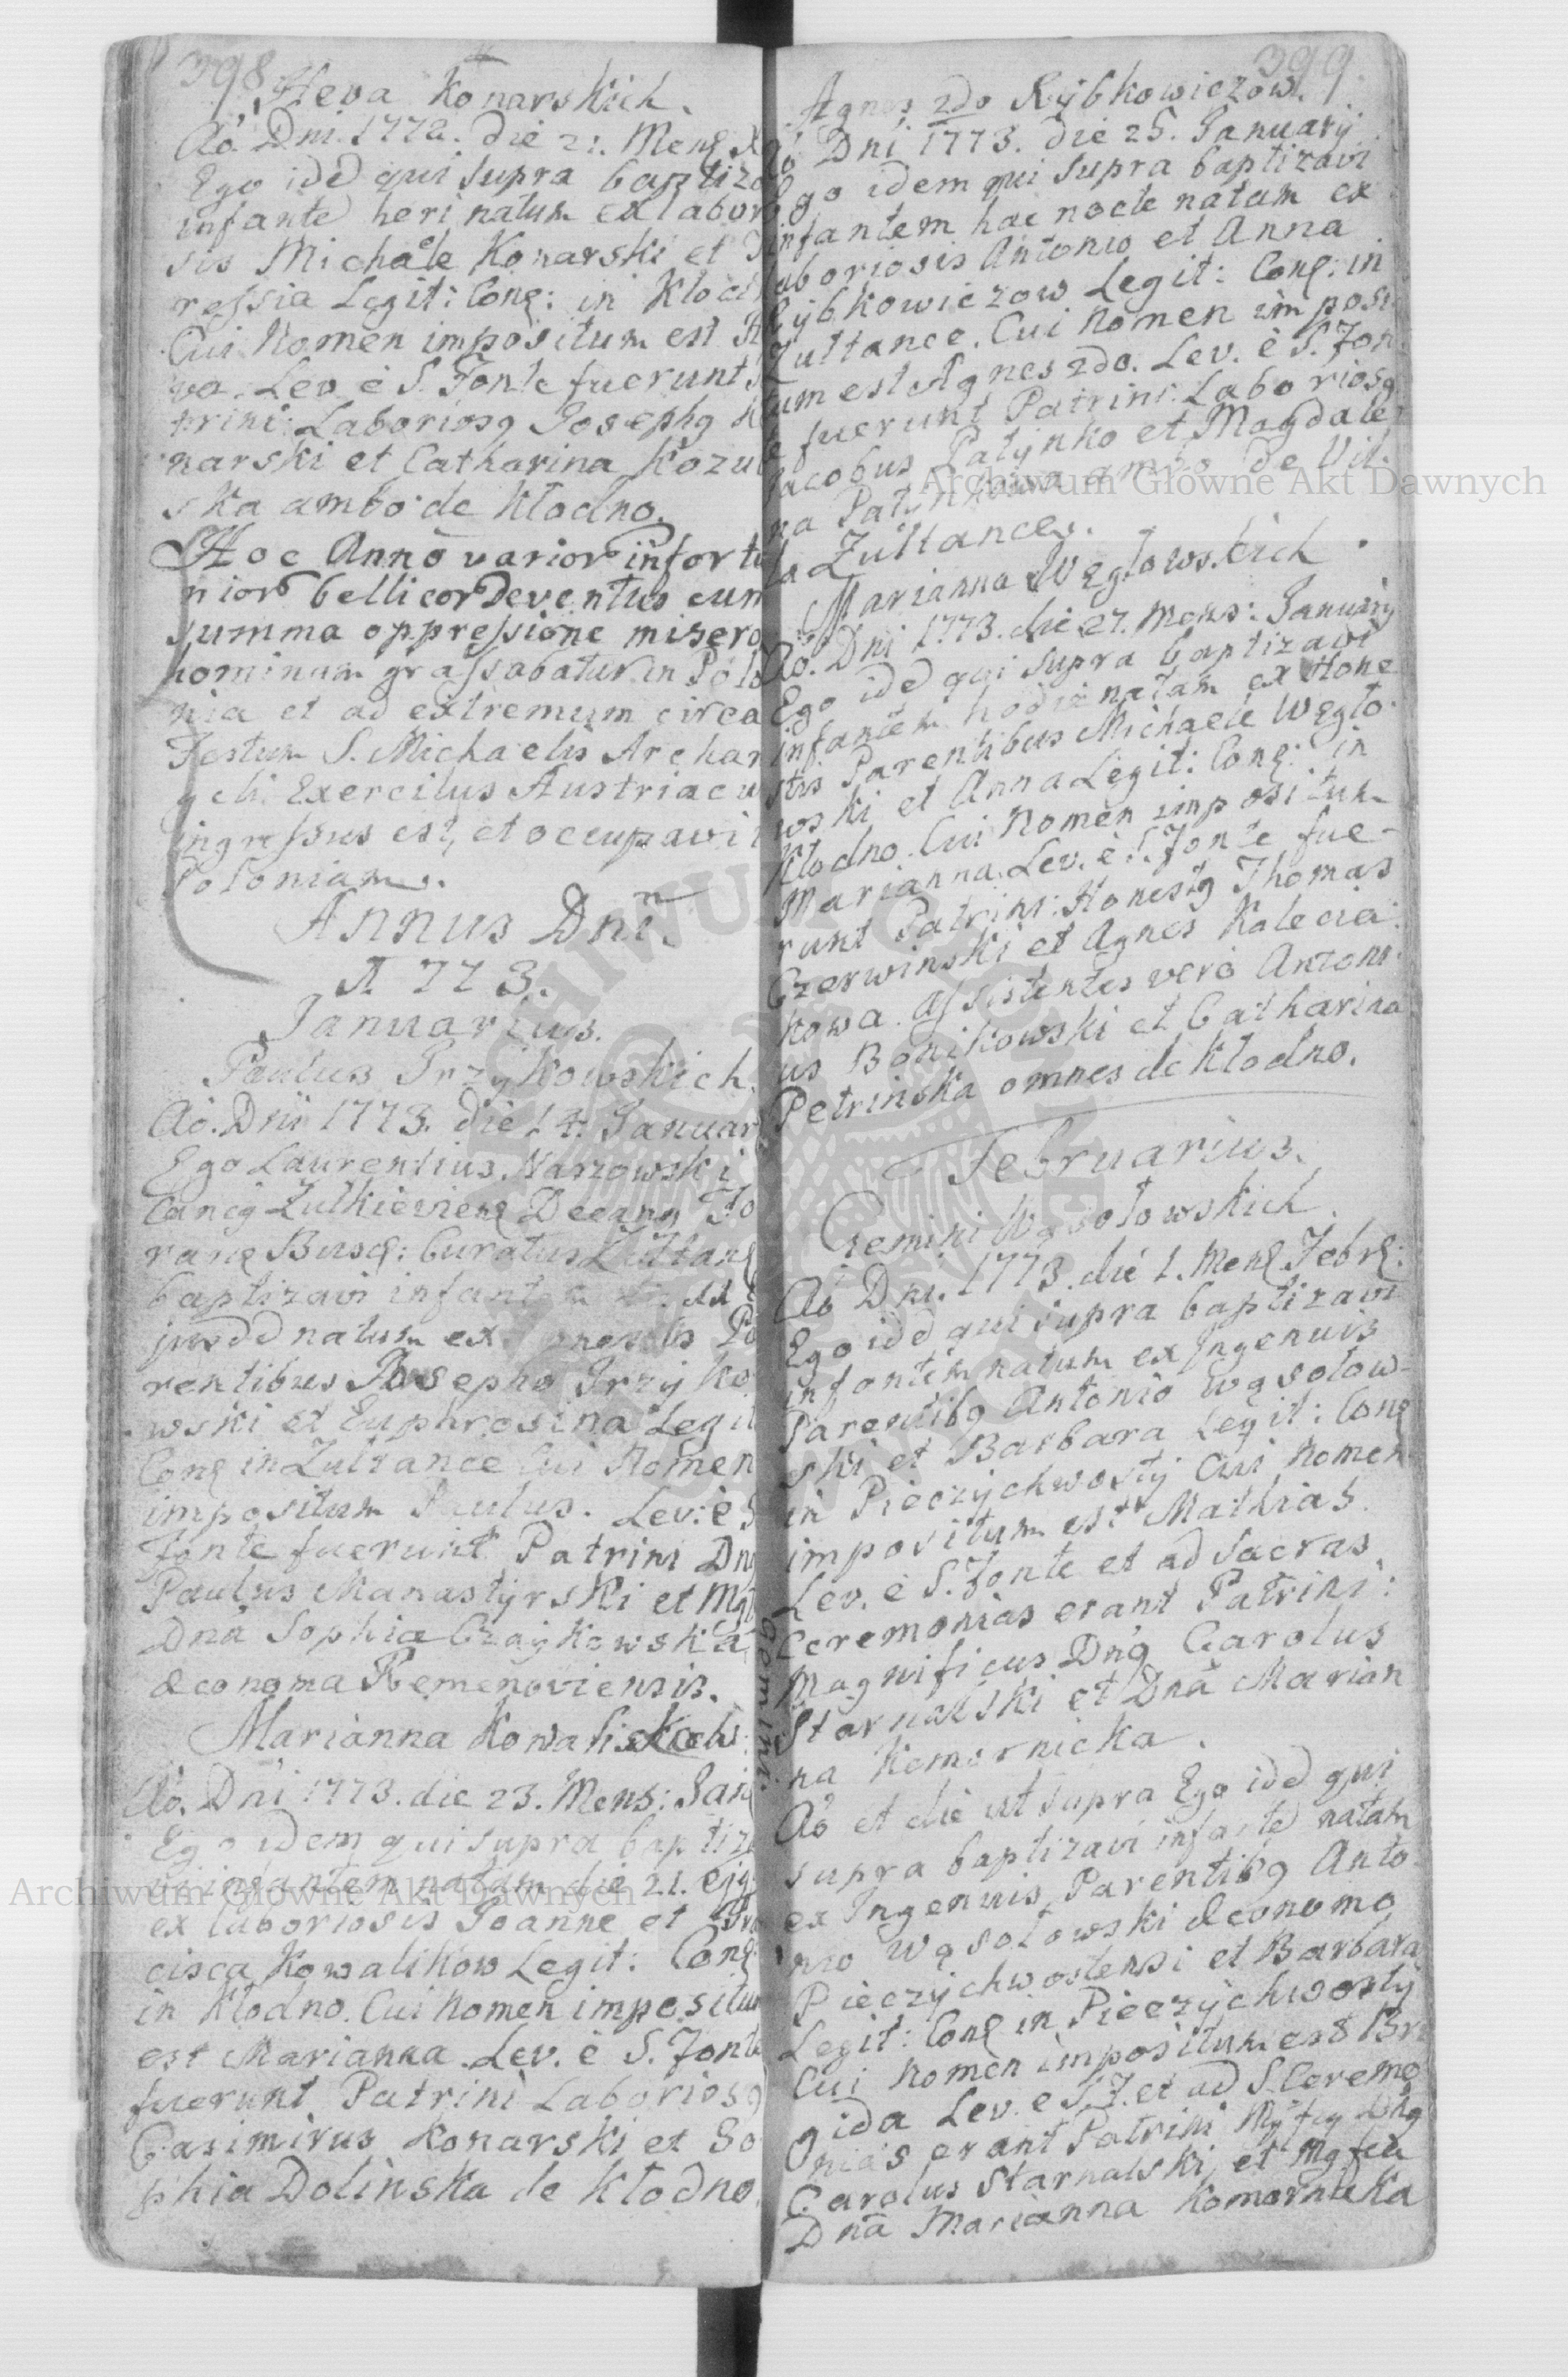 398
Heva Konarskich.
Ao. Dni. 1772. die 21. Mens
Ego ide qui supra baptiza
infante heri natum ex labor
sis Michaele Konarski et
ressia Legit: Cons: in Klod
Cui Nomen impositum est H
va. Lev. è S. Fonte fuerunt
trini: Laboriosq Josephq K
narski et Catharina Kozul
ska ambo de Kłodno.
Hoc Anno varior infortu
nior bellicor eventus cum
summa oppressione misero
hominum grassabatur in Polo
nia et ad extremum circa
Festum S. Michaelis Archan
geli Exercitus Austriacu
ingressus est, et occupavi
Poloniam.
Annus Dni
1773.
Januarius.
Paulus Przykowskich.
Ao. Dni 1773. die 14. Januar
Ego Laurentius Narzowski
Cancq Zulkieviens Decanq Fo
rane Busc: Curatus Zultans
baptizavi infantem
jusdd natum ex Honestis Pa
rentibus Josepho Przyko
wski et Euphrosina Legit
Cons in Zultance Cui Nomen
impositum Paulus. Lev: è S
Fonte fuerunt Patrini Dnq
Paulus Manastyrski et Mgt
Dna Sophia Czaykowska
Œconoma Remenoviensis.
Marianna Kowalis
Ao. Dni 1773. die 23. Mens: Jan
Ego idem qui supra baptiza
vi infantem natam die 21. ejq
ex laboriosis Joanne et Fra
cisca Kowalikow Legit: Cons
in Kłodno. Cui Nomen impositum
est Marianna. Lev. è S. Fonte
fuerunt Patrini Laboriosq
Casimirus Konarski et So
phia Dolinska de Kłodno.
399.
Agnes 2do Rybkowiczow.
Ao Dni 1773. die 25. January
Ego idem qui supra baptizavi
infantem hac nocte natam ex
laboriosis Antonio et Anna
Rybkowiczow Legit: Cons: in
Zultance. Cui Nomen imposi
tum est Agnes 2do. Lev. è S. Fon
te fuerunt Patrini: Laboriosq
Jacobus Patynko et Magdale
na Patynkowa ambo de Vil
la Zultance.
Marianna Węgłowskich.
Ao. Dni 1773. die 27. Mens: January
Ego ide qui supra baptizavi
infantem hodie natam ex Hone
stis Parentibus Michaele Węgło
wski et Anna Legit: Cons: in
Kłodno. Cui Nomen impositum
Marianna. Lev. è S. Fonte fue-
runt Patrini: Honestq Thomas
Czerwinski et Agnes Kalecia
kowa. Assistentes verò Antoni
us Bonikowski et Catharina
Petrinska omnes de Kłodno.
Februarius.
Gemini Wąsołowskich.
Ao Dni. 1773. die 1. Mens Febrs:
Ego ide qui supra baptizavi
infantem natum ex Ingenuis
Parentibq Antonio Wąsołow-
ski et Barbara Legit: Cons
in Pieczychwosty Cui Nomen
impositum est Mathias.
Lev. è S. Fonte et ad Sacras
Ceremonias erant Patrini:
Magnificus Dnq Carolus
Starnalski et Dna Marian
na Komornicka.
gemini.
Ao et die ut supra Ego ide qui
supra baptizavi infante natam
ex Ingenuis Parentibq Anto
nio Wąsołowski Œconomo
Pieczychwostensi et Barbara
Legit: Cons in Pieczychwosty
Cui Nomen impositum est Bri
gida Lev. e S. F. et ad S. Ceremo
nias erant Patrini Mgfcq Dnq
Carolus Starnalski et Mgfca
Dna Marianna Komornicka
Archiwum Główne Akt Dawnych
Archiwum Główne Akt Dawnych